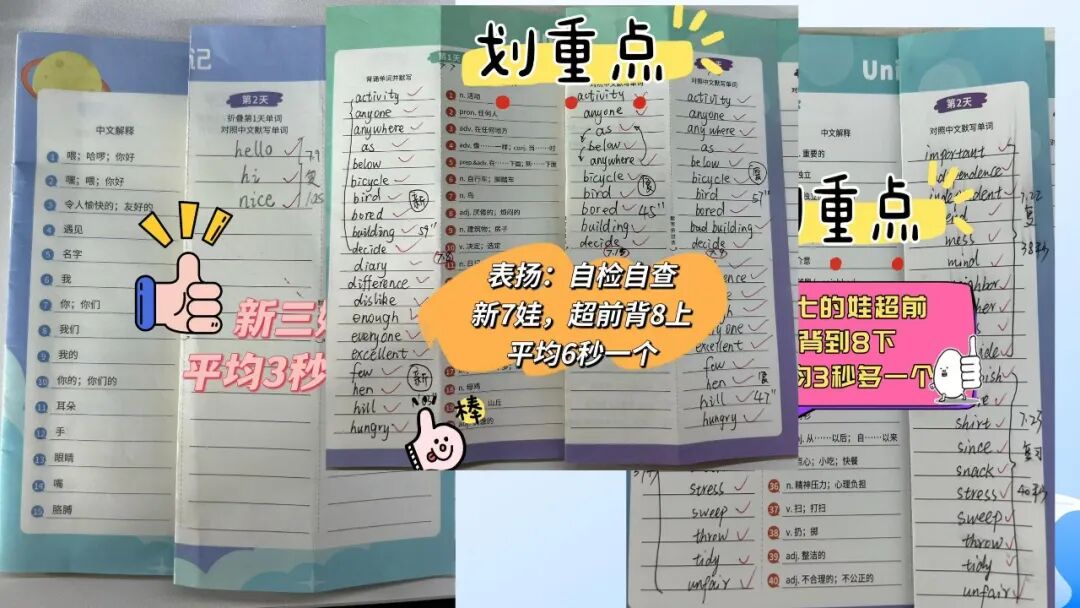 中文解释
1 喂；哈啰；你好
2 嘿；喂；你好
3 令人愉快的；友好的
4 遇见
5 名字
6 我
7 你；你们
8 我们
9 我的
10 你的；你们的
11 耳朵
12 手
13 眼睛
14 嘴
15 胳膊
记
第2天
折叠第1天单词
对照中文默写单词
hello
hi
nice
7.9
复
新三
平均3秒
划重点
第1天
背诵单词并默写
activity
anyone
anywhere
as
below
bicycle
bird
bored
building 59"
decide
diary
difference
dislike
enough
everyone
excellent
few
hen
hill
hungry
新
新
1 n. 活动
2 pron. 任何人
3 adv. 在任何地方
4 adv. 像……一样；conj. 当……时
5 prep.&adv. 在……下面；到……下面
6 n. 自行车；脚踏车
7 n. 鸟
8 adj. 厌倦的；烦闷的
9 n. 建筑物；房子
10 v. 决定；选定
n. 母鸡
山丘
对照中文默写单词
activity
anyone
as
below
anywhere
bicycle
bird
bored 45"
building
decide
复
天
对照中文默写单词
activity
anyone
anywhere
as
below
bicycle
bird 57"
bored
building
decide
复
excellent
few
hen
hill 47"
hungry
表扬：自检自查
新7娃，超前背8上
平均6秒一个
棒
Uni
中文解释
重要的
独立
划重点
七的娃超前
背到8下
均3秒多一个
第2天
对照中文默写单词
important
independent
mess
mind
neighbor
shirt
since
snack
stress
sweep
throw
tidy
unfair
7.22
复
38秒
7.23
复习
40秒
stress
sweep
throw
tidy
unfair
从……以后；自……以来
点心；小吃；快餐
36 n. 精神压力；心理负担
37 v. 扫；打扫
38 v. 扔；掷
39 adj. 整洁的
40 adj. 不合理的；不公正的